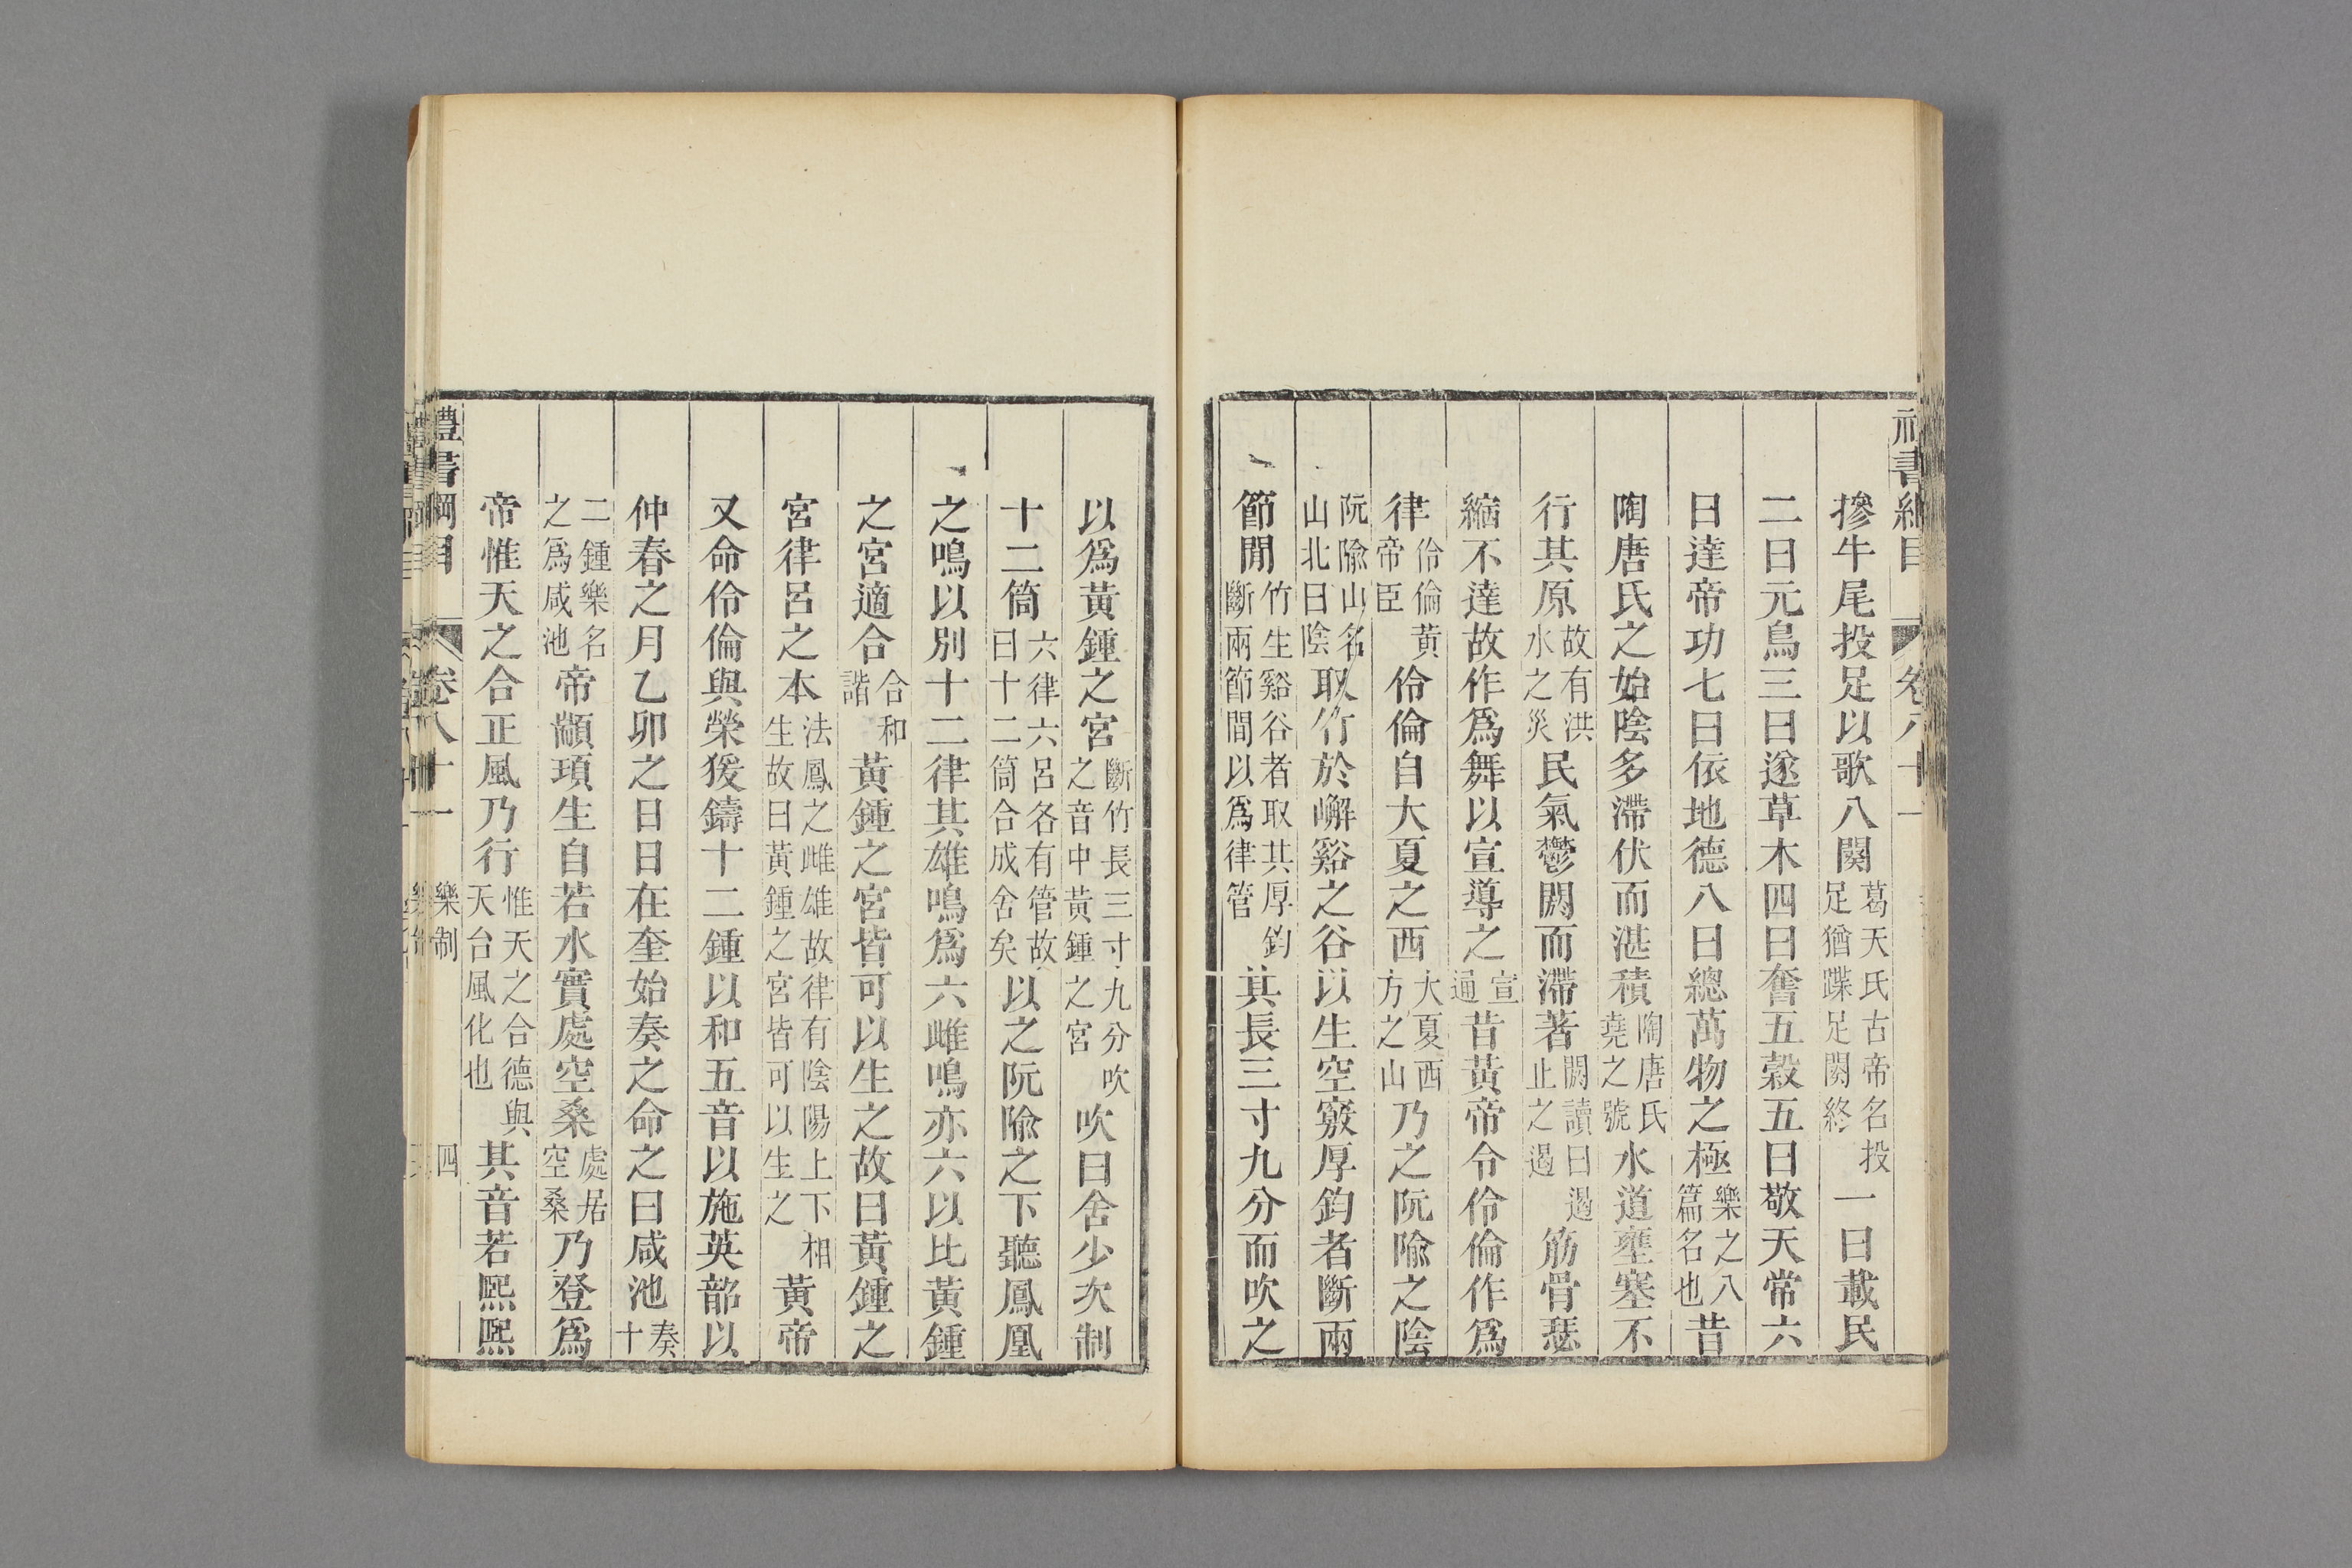 摻牛尾投足以歌八闋葛天氏古帝名投足猶蹀足闋終一曰載民
二曰元鳥三曰遂草木四曰奮五穀五曰敬天常六
曰達帝功七曰依地德八曰總萬物之極樂之八篇名也昔
陶唐氏之始陰多滯伏而湛積陶唐氏堯之號水道壅塞不
行其原故有洪水之災民氣鬱閼而滯著閼讀曰遏止之遏筋骨瑟
縮不達故作爲舞以宣導之宣通昔黃帝令伶倫作爲
律伶倫黃帝臣伶倫自大夏之西大夏西方之山乃之阮隃之陰
阮隃山名山北曰陰取竹於嶰谿之谷以生空竅厚鈞者斷兩
節閒竹生谿谷者取其厚鈞斷兩節間以爲律管其長三寸九分而吹之
以爲黃鍾之宮斷竹長三寸九分吹之音中黃鍾之宮吹曰舍少次制
十二筒六律六呂各有管故曰十二筒合成舍矣以之阮隃之下聽鳳凰
之鳴以別十二律其雄鳴爲六雌鳴亦六以比黃鍾
之宮適合合和諧黃鍾之宮皆可以生之故曰黃鍾之
宮律呂之本法鳳之雌雄故律有陰陽上下相生故曰黃鍾之宮皆可以生之黃帝
又命伶倫與榮猨鑄十二鍾以和五音以施英韶以
仲春之月乙卯之日日在奎始奏之命之曰咸池奏十
二鍾樂名之爲咸池帝顓頊生自若水實處空桑處居空桑乃登爲
帝惟天之合正風乃行惟天之合德與天台風化也其音若熙熙
禮書綱目 卷八十一 樂制 四